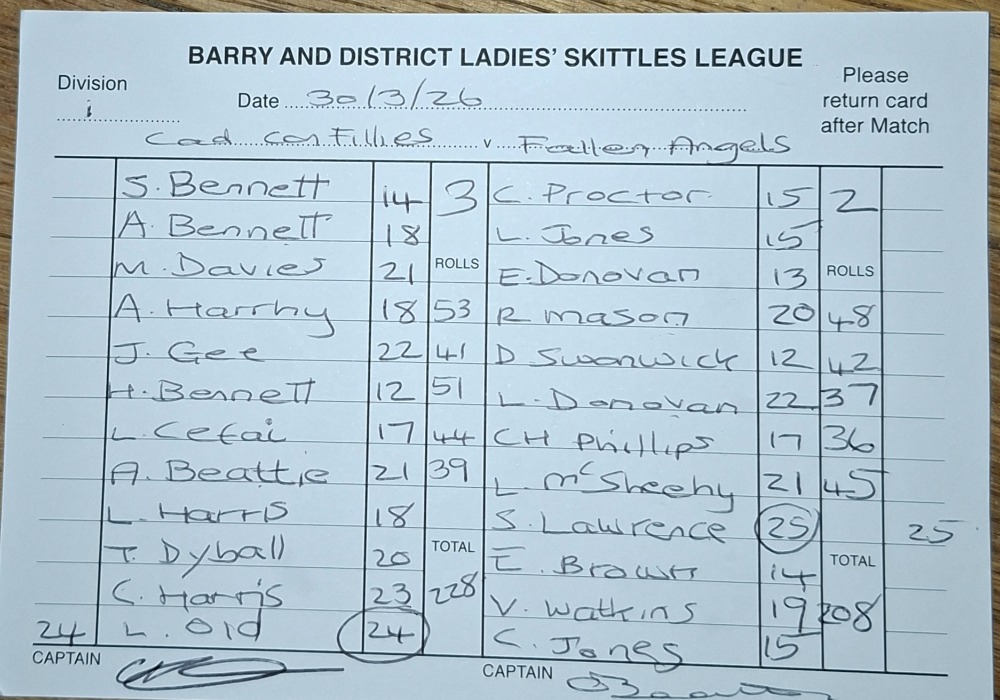 BARRY AND DISTRICT LADIES' SKITTLES LEAGUE
Division
i
Date 30/3/26
Please
return card
after Match
Cad cos Fillies v Fallen Angels
S. Bennett 14 3 C. Proctor 15 2
A. Bennett 18 L. Jones 15
M. Davies 21 ROLLS E. Donovan 13 ROLLS
A. Harrhy 18 53 R mason 20 48
J. Gee 22 41 D Swanwick 12 42
H. Bennett 12 51 L. Donovan 22 37
L. Cefai 17 44 CH Phillips 17 36
A. Beattie 21 39 L. McSheehy 21 45
L. Harris 18 S. Lawrence 25 25
T. Dyball 20 TOTAL E. Brown 14 TOTAL
C. Harris 23 228 V. Watkins 19 208
24 L. Old 24 C. Jones 15
CAPTAIN CAPTAIN